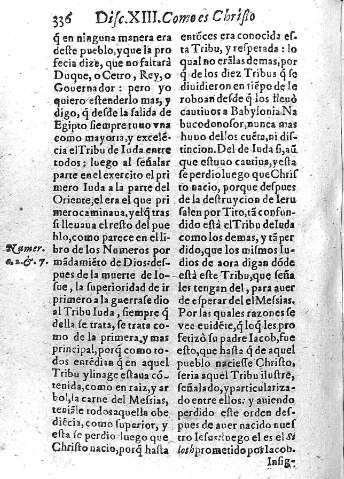 336 Disc.XIII. Como es Christo
q̃ en ninguna manera era
deste pueblo, y que la pro
fecia dize, que no faltarà
Duque, o Cetro, Rey, o
Gouernador: pero yo
quiero estenderlo mas, y
digo, q̃ desde la salida de
Egipto siempre tuuo vna
como mayoria, y excelẽ
cia el Tribu de Iuda entre
todos; luego al señalar
parte en el exercito el pri
mero Iuda a la parte del
Oriente, el era el que pri
mero caminaua, y el q̃ tras
si lleuaua el resto del pue
blo, como parece en el li
bro de los Numeros por
mãdamiẽto de Dios: des
pues de la muerte de Io-
sue, la superioridad de ir
primero a la guerra se dio
al Tribu Iuda, siempre q̃
della se trata, se trata co
mo de la primera, y mas
principal, porq̃ como to
dos entẽdian q̃ en aquel
Tribu y linage estaua cõ-
tenida, como en raiz, y ar
bol, la carne del Mesias,
teniãle todos aquella obe
diẽcia, como superior, y
esta se perdio luego que
Christo nacio, porq̃ hasta
Numer.
c. 2. & 7.
entõces era conocida es-
ta Tribu, y respetada: lo
qual no erã las demas, por
q̃ de los diez Tribus q̃ se
diuidieron en tiẽpo de Ie
roboan desde q̃ los lleuò
cautiuos a Babylonia Na
bucodonosor, nunca mas
huuo dellos cuẽta, ni dis-
tincion. Del de Iuda si, aũ
que estuuo cautiua, y esta
se perdio luego que Chris
to nacio, porque despues
de la destruycion de Ieru
salen por Tito, tã confun-
dido està el Tribu de Iuda
como los demas, y tã per
dido, que los mismos Iu-
dios de aora digan dõde
està este Tribu, que seña-
les tengan del, para auer
de esperar del el Mesias.
Por las quales razones se
vee euidẽte, q̃ lo q̃ les pro
fetizò su padre Iacob, fue
esto, que hasta q̃ de aquel
pueblo naciesse Christo,
seria aquel Tribu ilustre,
señalado, y particulariza-
do entre ellos: y auiendo
perdido este orden des-
pues de auer nacido nues
tro Iesus: luego el es el Si
loh prometido por Iacob.
Insig-